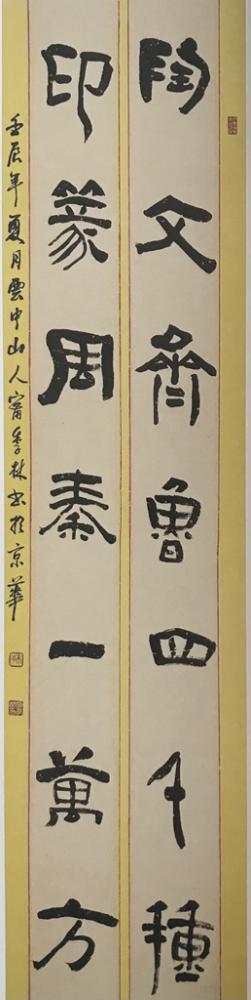 陶文齊魯四千種
印篆周秦一萬方
壬辰年夏月雲中山人甯季林書於京華